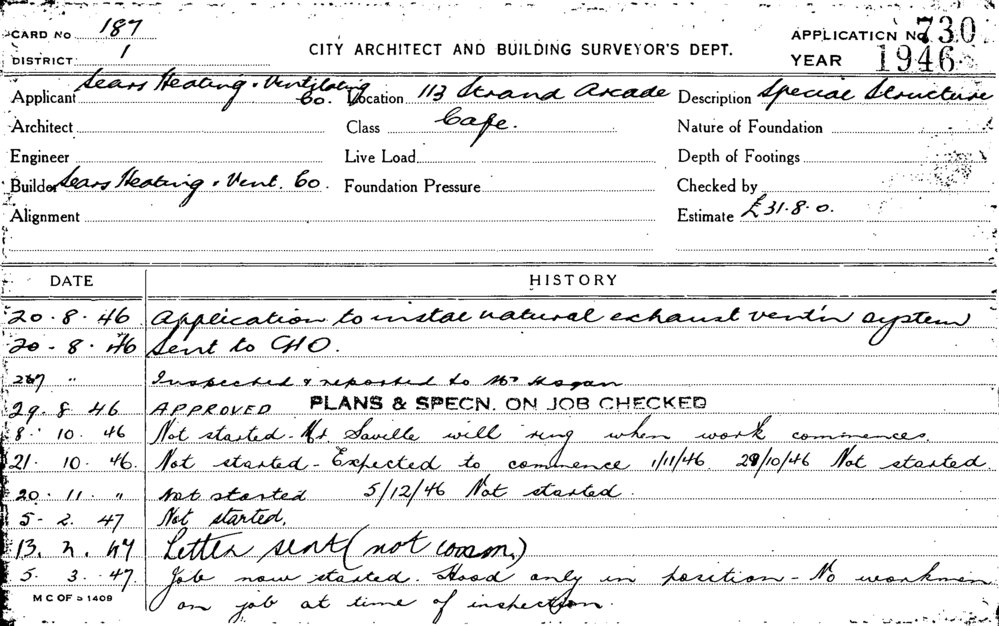 CARD No 187
DISTRICT 1
CITY ARCHITECT AND BUILDING SURVEYOR'S DEPT.
APPLICATION No 730
YEAR 1946
Applicant Sears Heating & Ventilating Co. Location 113 Strand Arcade Description Special Structure
Architect Class Cafe. Nature of Foundation
Engineer Live Load Depth of Footings
Builder Sears Heating & Vent. Co. Foundation Pressure Checked by
Alignment Estimate £31.8.0.
DATE HISTORY
20.8.46 Application to instal natural exhaust vent'n system
20-8.46 Sent to CHO.
" Inspected & reported to Mr Hogan
29.8.46 APPROVED PLANS & SPECN. ON JOB CHECKED
8.10.46 Not started. Mr Saville will ring when work commences.
21.10.46. Not started - Expected to commence 1/11/46 29/10/46 Not started.
20.11. " Not started 5/12/46 Not started.
5-2.47 Not started.
13.2.47 Letter sent (not comm.)
5.3.47 Job now started. Hood only in position - No workmen
M C OF S 1409 on job at time of inspection.